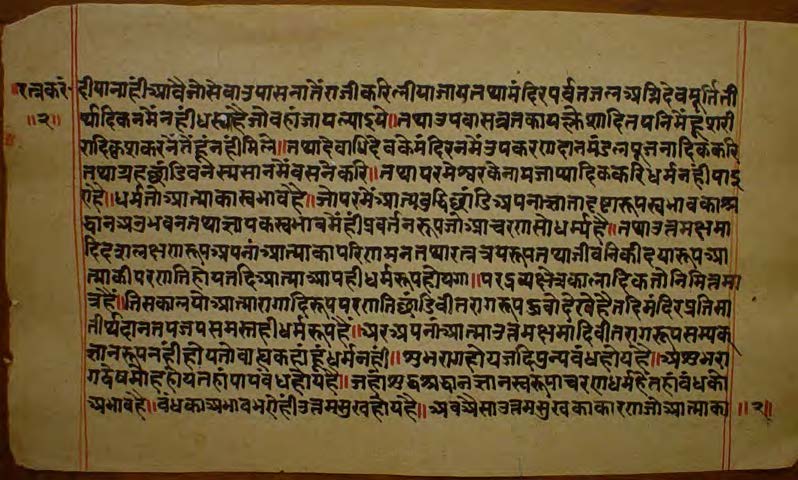 रत्नकरं॰ सेवा उपासनातैं राजी करि लीया जाय तथा मंदिर पर्वत जल अग्नि देवमूर्ति ती
॥२॥ र्थादिकनमें नहीं धस्या है जो वहां जाय ल्याइये॥ तथा उपवास व्रत कायक्लेशादि तपनिमें हू शरी
रादि कृश करनेतें हू नही मिले॥ तथा देवाधिदेवके मंदिरनमें उपकरण दान मंडल पूजनादिककरि
तथा ग्रह छांडि वन स्मसानमें वसनेकरि॥ तथा परमेश्वरके नाम जाप्यादिककरि धर्म नही पाइ
ए है॥ धर्म तो आत्माका स्वभाव है॥ जो परमें आत्मबुद्धि छांडि अपना ज्ञाता दृष्टारूप स्वभावका श्र
द्धान अनुभवन तथा ज्ञायक स्वभावमें ही प्रवर्तनरूप जो आचरण सो धर्म्म है॥ तथा उत्तमक्षमा
दि दशलक्षणरूप अपना आत्माका परिणमन तथा रत्नत्रयरूप तथा जीवनिकी दयारूप आ
त्माकी परणति होय तदि आत्मा आपही धर्मरूप होयगा॥ परद्रव्य क्षेत्र कालादिक तो निमित्तमा
त्र है॥ जिसकाल यो आत्मा रागादिरूप परणति छांडि वीतरागरूप हुवो देखे है तदि मंदिर प्रतिमा
तीर्थ दान तप जप समस्तही धर्मरूप है॥ अर अपनो आत्मा उत्तमक्षमादि वीतरागरूप सम्यक्
ज्ञानरूप नही होय तो वाह्य कहां हूं धर्म नही॥ शुभराग होय जदि पुन्यबंध होय है॥ अशुभ रा
ग द्वेष मोह होय तहां पापबंध होय है॥ जहां शुद्ध श्रद्धान ज्ञान स्वरूपाचरण धर्म है तहां बंधको
अभाव है॥ बंधका अभाव भये ही उत्तम सुख होय है॥ अब ऐसा उत्तम सुखका कारण जो आत्माका ॥२॥